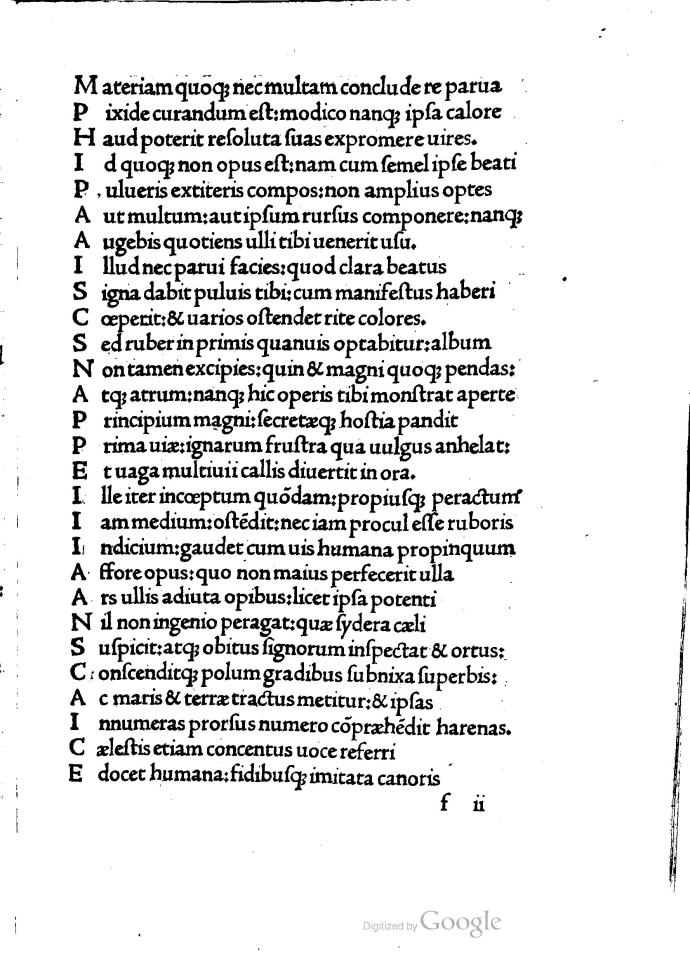 Materiam quoq; nec multam conclude re parua
Pixide curandum eſt: modico nanq; ipſa calore
Haud poterit reſoluta ſuas expromere uires.
Id quoq; non opus eſt: nam cum ſemel ipſe beati
Pulueris extiteris compos: non amplius optes
Aut multum: aut ipſum rurſus componere: nanq;
Augebis quotiens ulli tibi uenerit uſu.
Illud nec parui facies: quod clara beatus
Signa dabit puluis tibi: cum manifeſtus haberi
Cœperit: & uarios oſtendet rite colores.
Sed ruber in primis quanuis optabitur: album
Non tamen excipies: quin & magni quoq; pendas:
Atq; atrum: nanq; hic operis tibi monſtrat aperte
Principium magni: ſecretæq; hoſtia pandit
Prima uiæ: ignarum fruſtra qua uulgus anhelat:
Et uaga multiuii callis diuertit in ora.
Ille iter incœptum quōdam: propiuſq; peractum
Iam medium: oſtēdit: nec iam procul eſſe ruboris
Indicium: gaudet cum uis humana propinquum
Affore opus: quo non maius perfecerit ulla
Ars ullis adiuta opibus: licet ipſa potenti
Nil non ingenio peragat: quæ ſydera cæli
Suſpicit: atq; obitus ſignorum inſpectat & ortus:
Conſcenditq; polum gradibus ſubnixa ſuperbis:
Ac maris & terræ tractus metitur: & ipſas
Innumeras prorſus numero cōpræhēdit harenas.
Cæleſtis etiam concentus uoce referri
Edocet humana: fidibuſq; imitata canoris
f ii
Digitized by Google